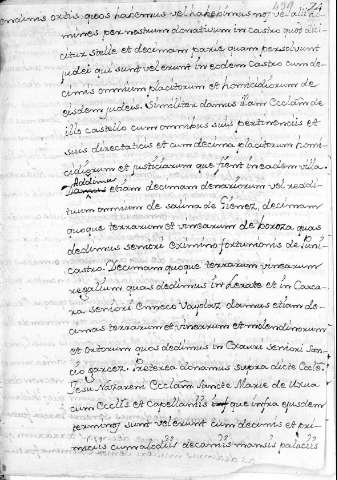 439 24
omnimus ortis quos habemus vel habebimus nos vel alii ho
mines per nostrum donativum in Castro quod di
citur stelle et decimam parie quam persolvunt
judei qui sunt vel erunt in eodem Castro cum de
cimis omnium placitorum et homicidiorum de
eisdem judeis. Similiter damus illam Ecclam de
illo castello cum omnibus suis pertinenciis et
suis directaticis et cum decima placitorum homi
cidiorum et justiciarum que fient in eadem villa.
Addimus
etiam decimam denariorum vel reddi
tuum omnium de salina de Gienez, decimam
quoque terrarum et vinearum de boroza quas
dedimus seniori eximino fortunionis de Puni
castro. Decimam quoque terrarum vinearum
regalium quas dedimus in Lerate et in Carca
ra seniori Enneco Vaylaz damus etiam de
cimas terrarum et vinearum et molendinorum
et ortorum quos dedimus in Oxauri seniori San
cio garcez. Preterea donamus supra dicte Eccle
Jesu Nazareni Ecclam Sancte Marie de Uxua
cum Ecclis et Capellaniis que infra ejusdem
terminos sunt vel erunt cum decimis et pri
miciis cum decanis mansis palaciis